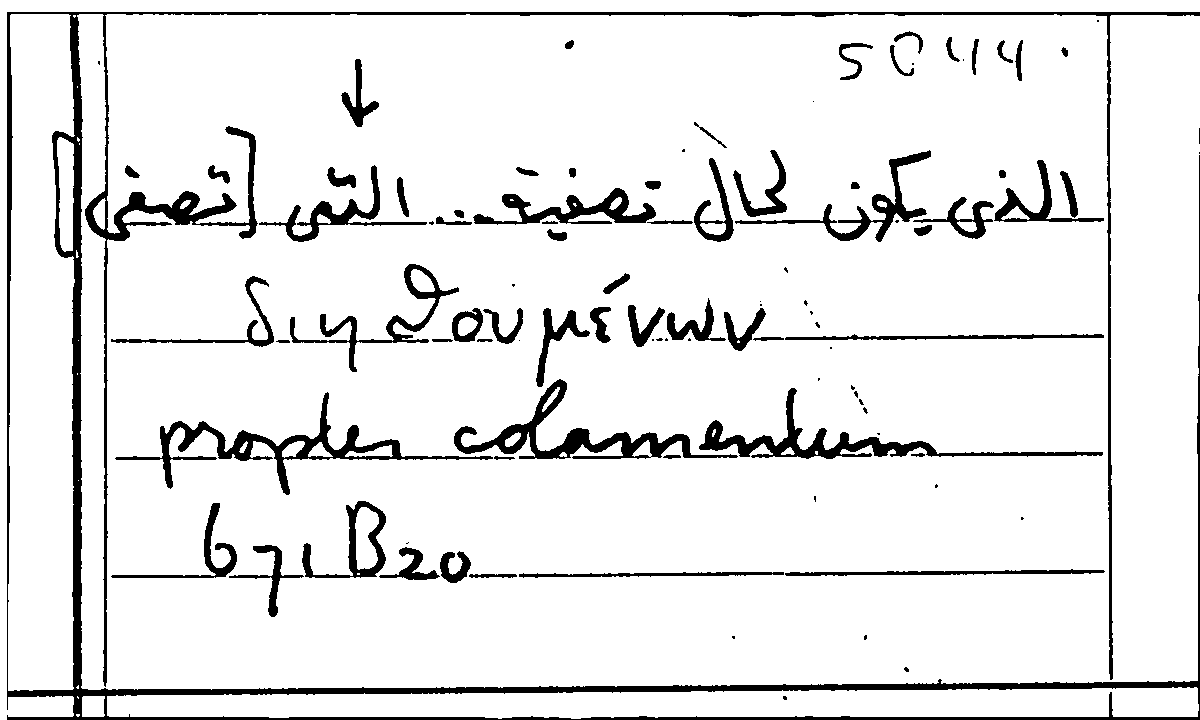 5044.
↓
الذى يكون بحال تصفية... التى [تصفى]
διηθουμένων
propter colamentum
671 B20